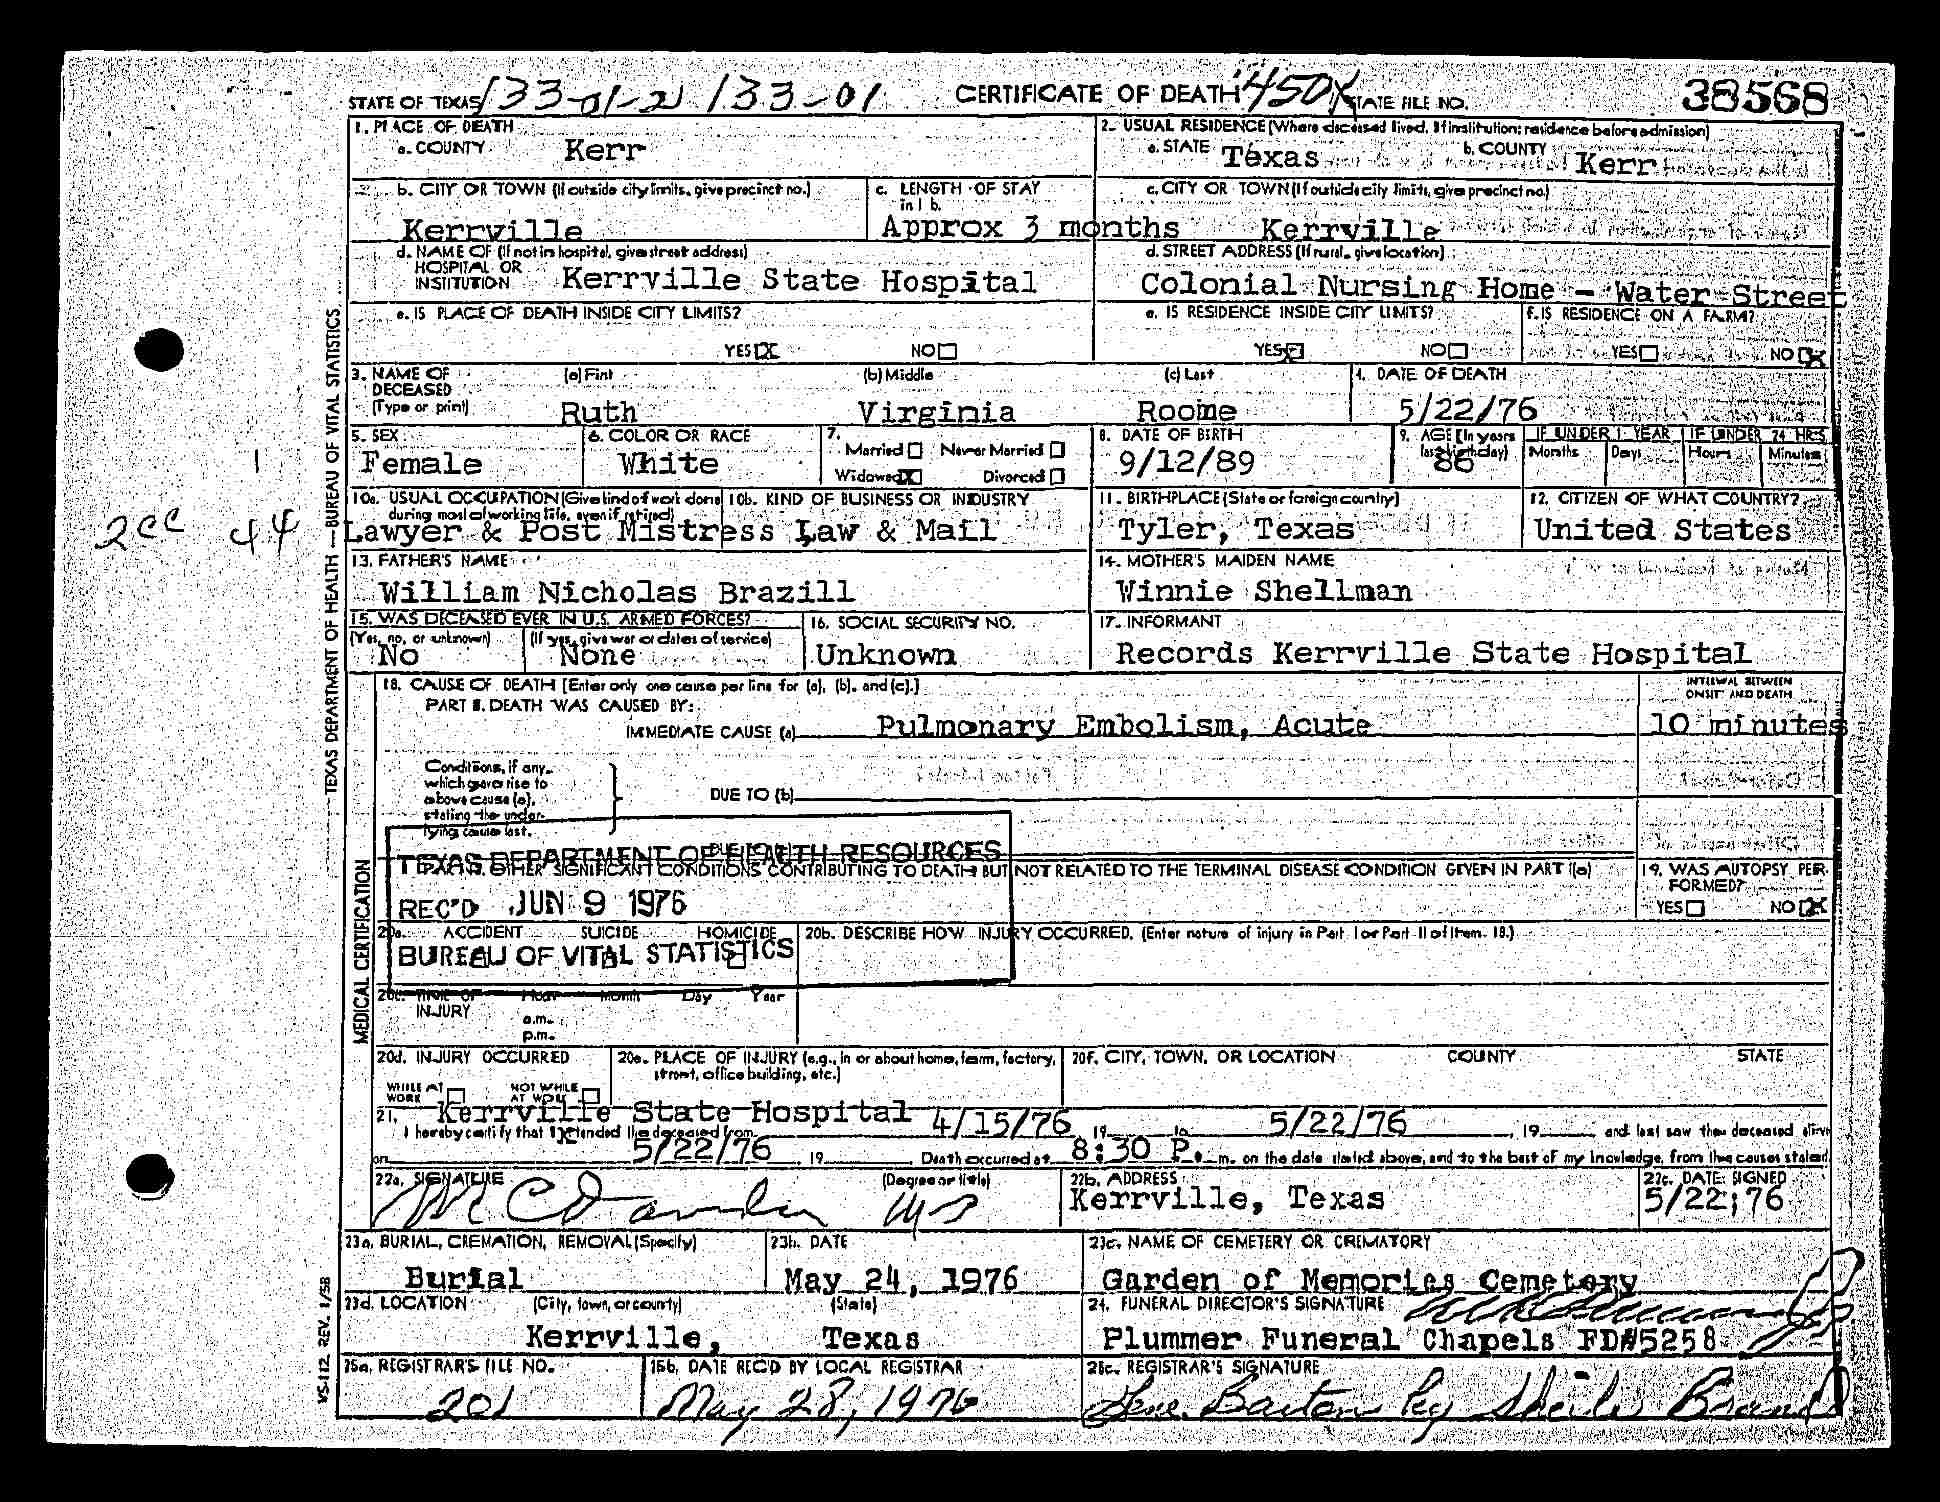 STATE OF TEXAS 133-01-2 133-01 CERTIFICATE OF DEATH 450X STATE FILE NO. 38568
1. PLACE OF DEATH
a. COUNTY Kerr
2. USUAL RESIDENCE (Where deceased lived. If institution: residence before admission)
a. STATE Texas b. COUNTY Kerr
b. CITY OR TOWN (If outside city limits, give precinct no.)
Kerrville
c. LENGTH OF STAY in 1 b.
Approx 3 months
c. CITY OR TOWN (If outside city limits, give precinct no.)
Kerrville
d. NAME OF (If not in hospital, give street address)
HOSPITAL OR
INSTITUTION Kerrville State Hospital
d. STREET ADDRESS (If rural, give location)
Colonial Nursing Home - Water Street
e. IS PLACE OF DEATH INSIDE CITY LIMITS?
YES X NO
e. IS RESIDENCE INSIDE CITY LIMITS?
YES NO
f. IS RESIDENCE ON A FARM?
YES NO X
3. NAME OF DECEASED
(Type or print)
(a) First (b) Middle (c) Last
Ruth Virginia Roome
4. DATE OF DEATH
5/22/76
5. SEX
Female
6. COLOR OR RACE
White
7.
Married Never Married
Widowed X Divorced
8. DATE OF BIRTH
9/12/89
9. AGE (In years last birthday)
86
IF UNDER 1 YEAR
Months Days
IF UNDER 24 HRS
Hours Minutes
10a. USUAL OCCUPATION (Give kind of work done during most of working life, even if retired)
Lawyer & Post Mistress
10b. KIND OF BUSINESS OR INDUSTRY
Law & Mail
11. BIRTHPLACE (State or foreign country)
Tyler, Texas
12. CITIZEN OF WHAT COUNTRY?
United States
13. FATHER'S NAME
William Nicholas Brazill
14. MOTHER'S MAIDEN NAME
Winnie Shellman
15. WAS DECEASED EVER IN U.S. ARMED FORCES?
(Yes, no, or unknown) (If yes, give war or dates of service)
No None
16. SOCIAL SECURITY NO.
Unknown
17. INFORMANT
Records Kerrville State Hospital
18. CAUSE OF DEATH [Enter only one cause per line for (a), (b), and (c).]
PART I. DEATH WAS CAUSED BY:
IMMEDIATE CAUSE (a) Pulmonary Embolism, Acute
INTERVAL BETWEEN
ONSET AND DEATH
10 minutes
Conditions, if any,
which gave rise to
above cause (a),
stating the under-
lying cause last.
DUE TO (b)
TEXAS DEPARTMENT OF HEALTH RESOURCES
REC'D JUN 9 1976
BUREAU OF VITAL STATISTICS
OTHER SIGNIFICANT CONDITIONS CONTRIBUTING TO DEATH BUT NOT RELATED TO THE TERMINAL DISEASE CONDITION GIVEN IN PART I(a)
19. WAS AUTOPSY PERFORMED?
YES NO X
20a. ACCIDENT SUICIDE HOMICIDE
20b. DESCRIBE HOW INJURY OCCURRED. (Enter nature of injury in Part I or Part II of Item 18.)
20c. TIME OF Hour Month Day Year
INJURY
a.m.
p.m.
20d. INJURY OCCURRED
WHILE AT WORK NOT WHILE AT WORK
20e. PLACE OF INJURY (e.g., in or about home, farm, factory, street, office building, etc.)
20f. CITY, TOWN, OR LOCATION COUNTY STATE
21. Kerrville State Hospital
I hereby certify that I attended the deceased from 4/15/76, 19 to 5/22/76, 19 and last saw the deceased alive
on 5/22/76, 19 Death occurred at 8:30 P. m. on the date stated above, and to the best of my knowledge, from the causes stated.
22a. SIGNATURE (Degree or title)
MD
22b. ADDRESS
Kerrville, Texas
22c. DATE SIGNED
5/22/76
23a. BURIAL, CREMATION, REMOVAL (Specify)
Burial
23b. DATE
May 24, 1976
23c. NAME OF CEMETERY OR CREMATORY
Garden of Memories Cemetery
23d. LOCATION (City, town, or county) (State)
Kerrville, Texas
24. FUNERAL DIRECTOR'S SIGNATURE
Plummer Funeral Chapels FD#5258
25a. REGISTRAR'S FILE NO.
201
25b. DATE REC'D BY LOCAL REGISTRAR
May 28, 1976
25c. REGISTRAR'S SIGNATURE
Barton by Sheila Brand
TEXAS DEPARTMENT OF HEALTH — BUREAU OF VITAL STATISTICS
MEDICAL CERTIFICATION
VS-112 REV. 1/58
1
2cc 44